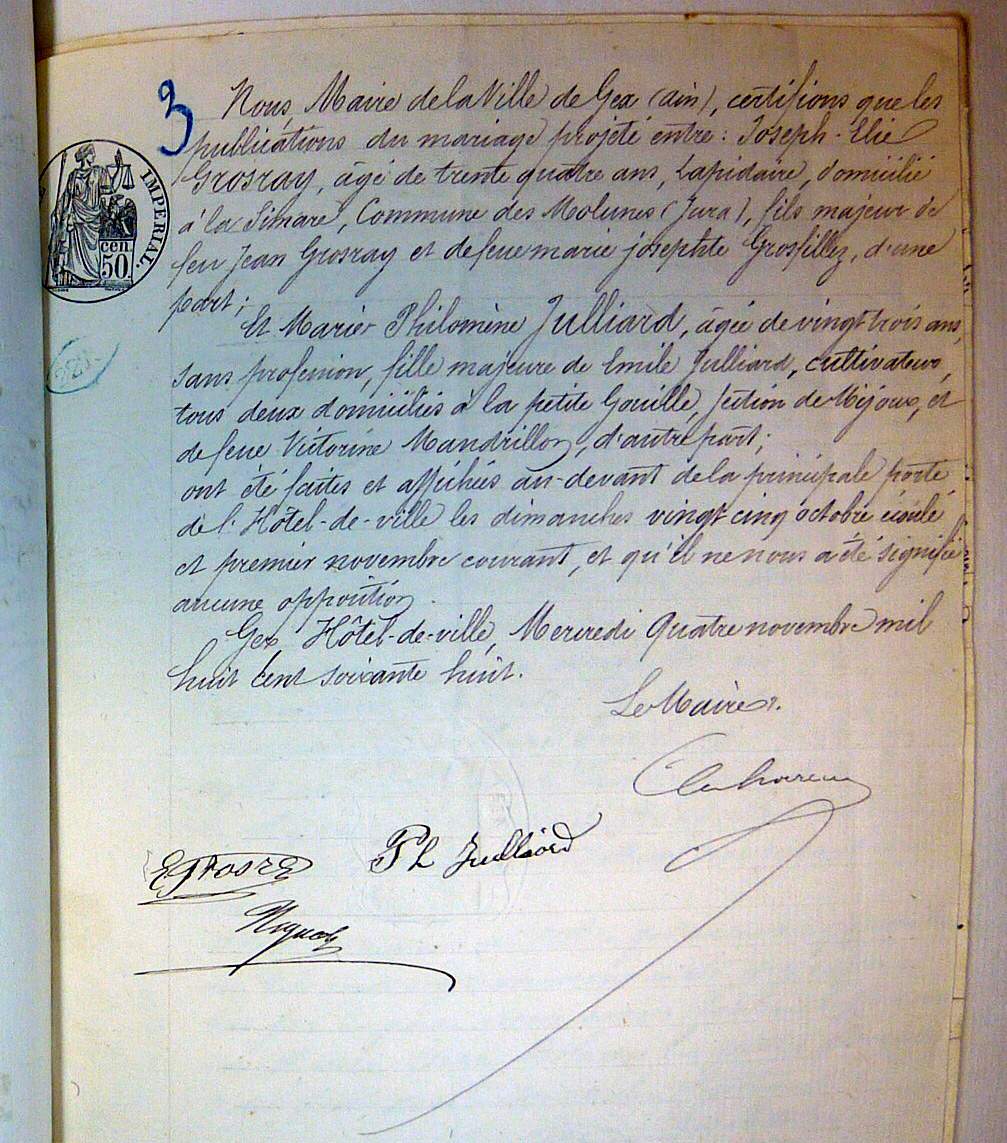 3
Nous, Maire de la Ville de Gex (ain), certifions que les
publications du mariage projeté entre : Joseph-Elie
Grosray, âgé de trente quatre ans, Lapidaire, domicilié
à la Simare, Commune des Molunes (Jura), fils majeur de
feu Jean Grosray et de feue marie josephte Grosfillez, d'une
part ;
Et Marie Philomène Julliard, âgée de vingt trois ans,
sans profession, fille majeure de Emile Julliard, cultivateur,
tous deux domiciliés à la petite Gouille, section de Mijoux, et
de feue Victorine Mandrillon, d'autre part ;
ont été faites et affichées au-devant de la principale porte
de l'Hôtel-de-ville les dimanches vingt cinq octobre écoulé
et premier novembre courant, et qu'il ne nous a été signifié
aucune opposition.
Gex, Hôtel-de-ville, Mercredi Quatre novembre mil
huit cent soixante huit.
Le Maire.
EGrosré
Ph Julliard
IMPERIAL.
50
cen